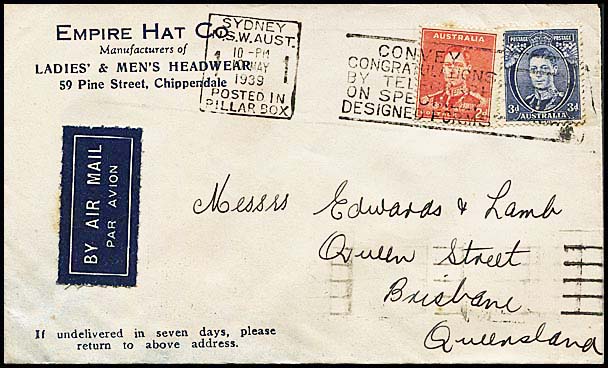 EMPIRE HAT Co
Manufacturers of
LADIES' & MEN'S HEADWEAR
59 Pine Street, Chippendale
SYDNEY
N.S.W. AUST.
10 -PM
1 MAY 1
1939
POSTED IN
PILLAR BOX
CONVEY
CONGRATULATIONS
BY TEL
ON SPECI
DESIGNED FORMS
POSTAGE POSTAGE
3d AUSTRALIA 3d
BY AIR MAIL
PAR AVION
Messrs Edwards & Lamb
Queen Street
Brisbane
Queensland
If undelivered in seven days, please
return to above address.